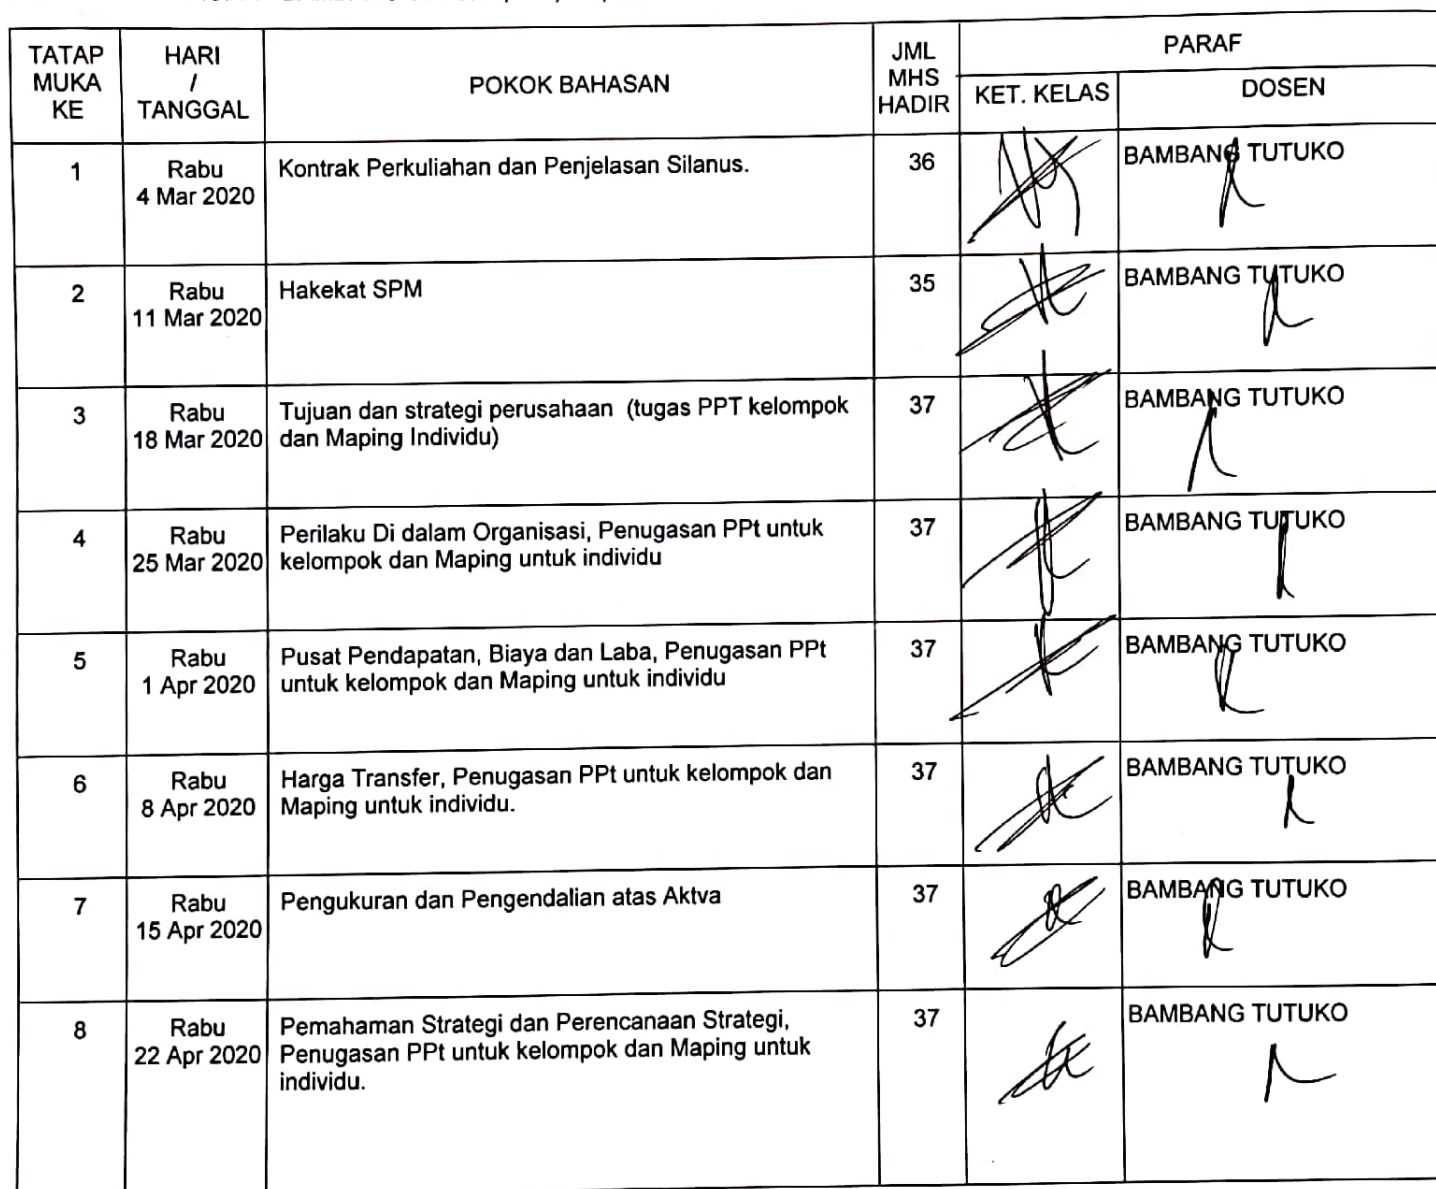 TATAP MUKA KE
HARI / TANGGAL
POKOK BAHASAN
JML MHS HADIR
PARAF
KET. KELAS
DOSEN
1
Rabu
4 Mar 2020
Kontrak Perkuliahan dan Penjelasan Silanus.
36
BAMBANG TUTUKO
2
Rabu
11 Mar 2020
Hakekat SPM
35
BAMBANG TUTUKO
3
Rabu
18 Mar 2020
Tujuan dan strategi perusahaan (tugas PPT kelompok
dan Maping Individu)
37
BAMBANG TUTUKO
4
Rabu
25 Mar 2020
Perilaku Di dalam Organisasi, Penugasan PPt untuk
kelompok dan Maping untuk individu
37
BAMBANG TUTUKO
5
Rabu
1 Apr 2020
Pusat Pendapatan, Biaya dan Laba, Penugasan PPt
untuk kelompok dan Maping untuk individu
37
BAMBANG TUTUKO
6
Rabu
8 Apr 2020
Harga Transfer, Penugasan PPt untuk kelompok dan
Maping untuk individu.
37
BAMBANG TUTUKO
7
Rabu
15 Apr 2020
Pengukuran dan Pengendalian atas Aktva
37
BAMBANG TUTUKO
8
Rabu
22 Apr 2020
Pemahaman Strategi dan Perencanaan Strategi,
Penugasan PPt untuk kelompok dan Maping untuk
individu.
37
BAMBANG TUTUKO